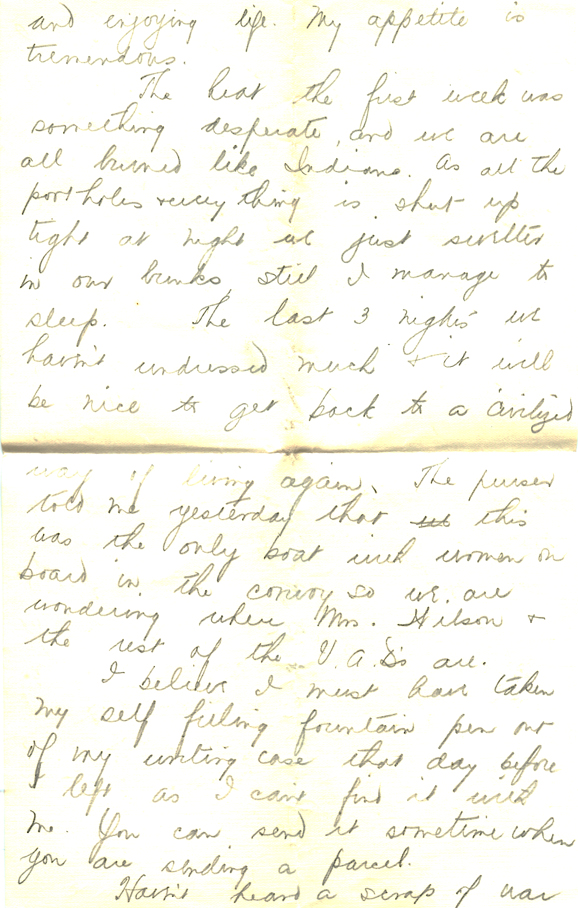 and enjoying life. My appetite is
tremendous.
The heat the first week was
something desperate, and we are
all burned like Indians. As all the
portholes & every thing is shut up
tight at night we just swelter
in our bunks, still I manage to
sleep. The last 3 nights we
haven't undressed much & it will
be nice to get back to a civilized
way of living again. The purser
told me yesterday that this
was the only boat with women on
board in the convoy so we are
wondering where Mrs. Wilson &
the rest of the V.A.D's are.
I believe I must have taken
my self filling fountain pen out
of my writing case that day before
I left as I can't find it with
me. You can send it sometime when
you are sending a parcel.
Haven't heard a scrap of war